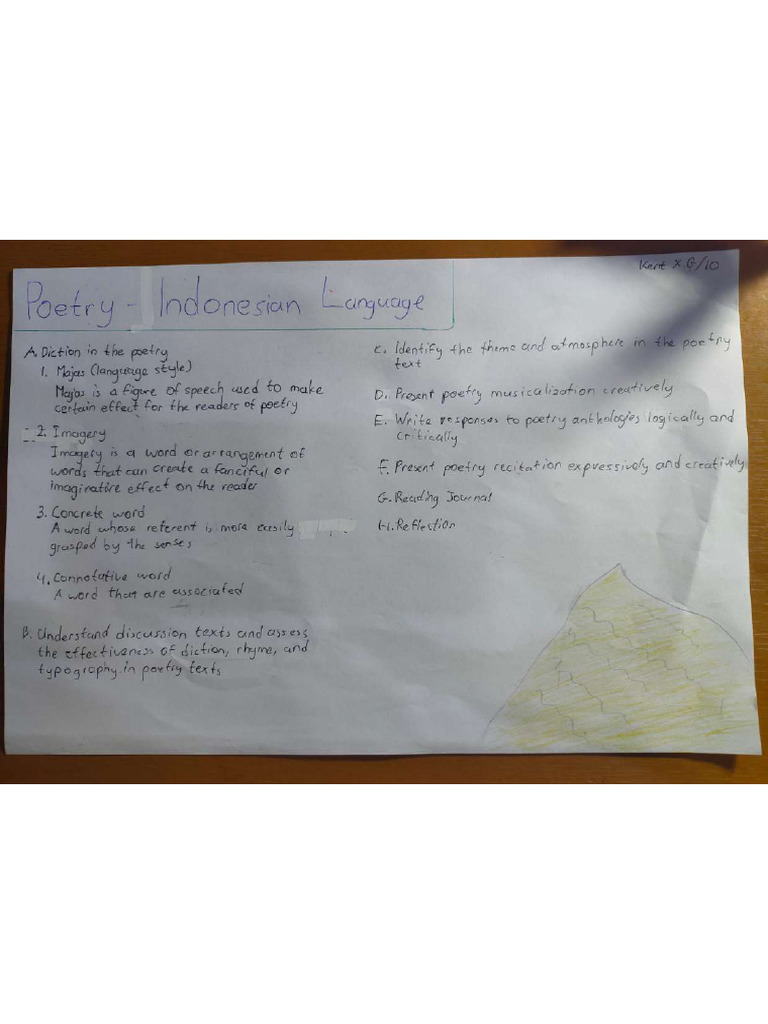 Kent X G/10
Poetry - Indonesian Language
A. Diction in the poetry
1. Majas (language style)
Majas is a figure of speech used to make
certain effect for the readers of poetry
2. Imagery
Imagery is a word or arrangement of
words that can create a fanciful or
imaginative effect on the reader
3. Concrete word
A word whose referent is more easily
grasped by the senses
4. Connotative word
A word that are associated
B. Understand discussion texts and assess
the effectiveness of diction, rhyme, and
typography in poetry texts
C. Identify the theme and atmosphere in the poetry
text
D. Present poetry musicalization creatively
E. Write responses to poetry anthologies logically and
critically
F. Present poetry recitation expressively and creatively
G. Reading Journal
H. Reflection